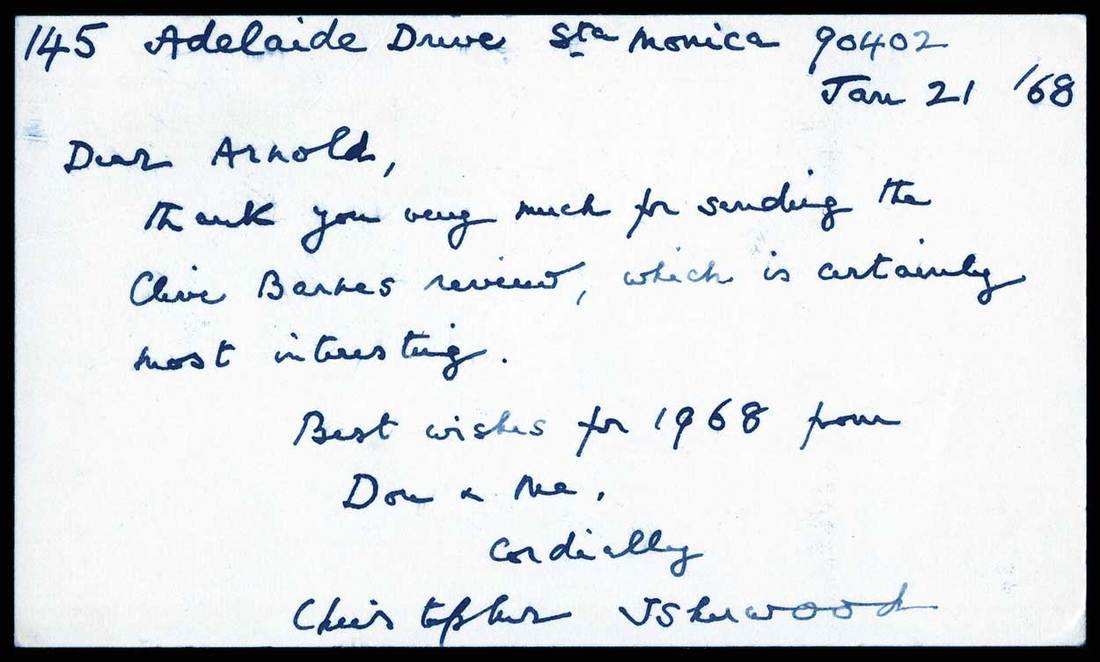 145 Adelaide Drive Sta Monica 90402
Jan 21 '68
Dear Arnold,
Thank you very much for sending the
Clive Barnes review, which is certainly
most interesting.
Best wishes for 1968 from
Don & me.
Cordially
Christopher Isherwood